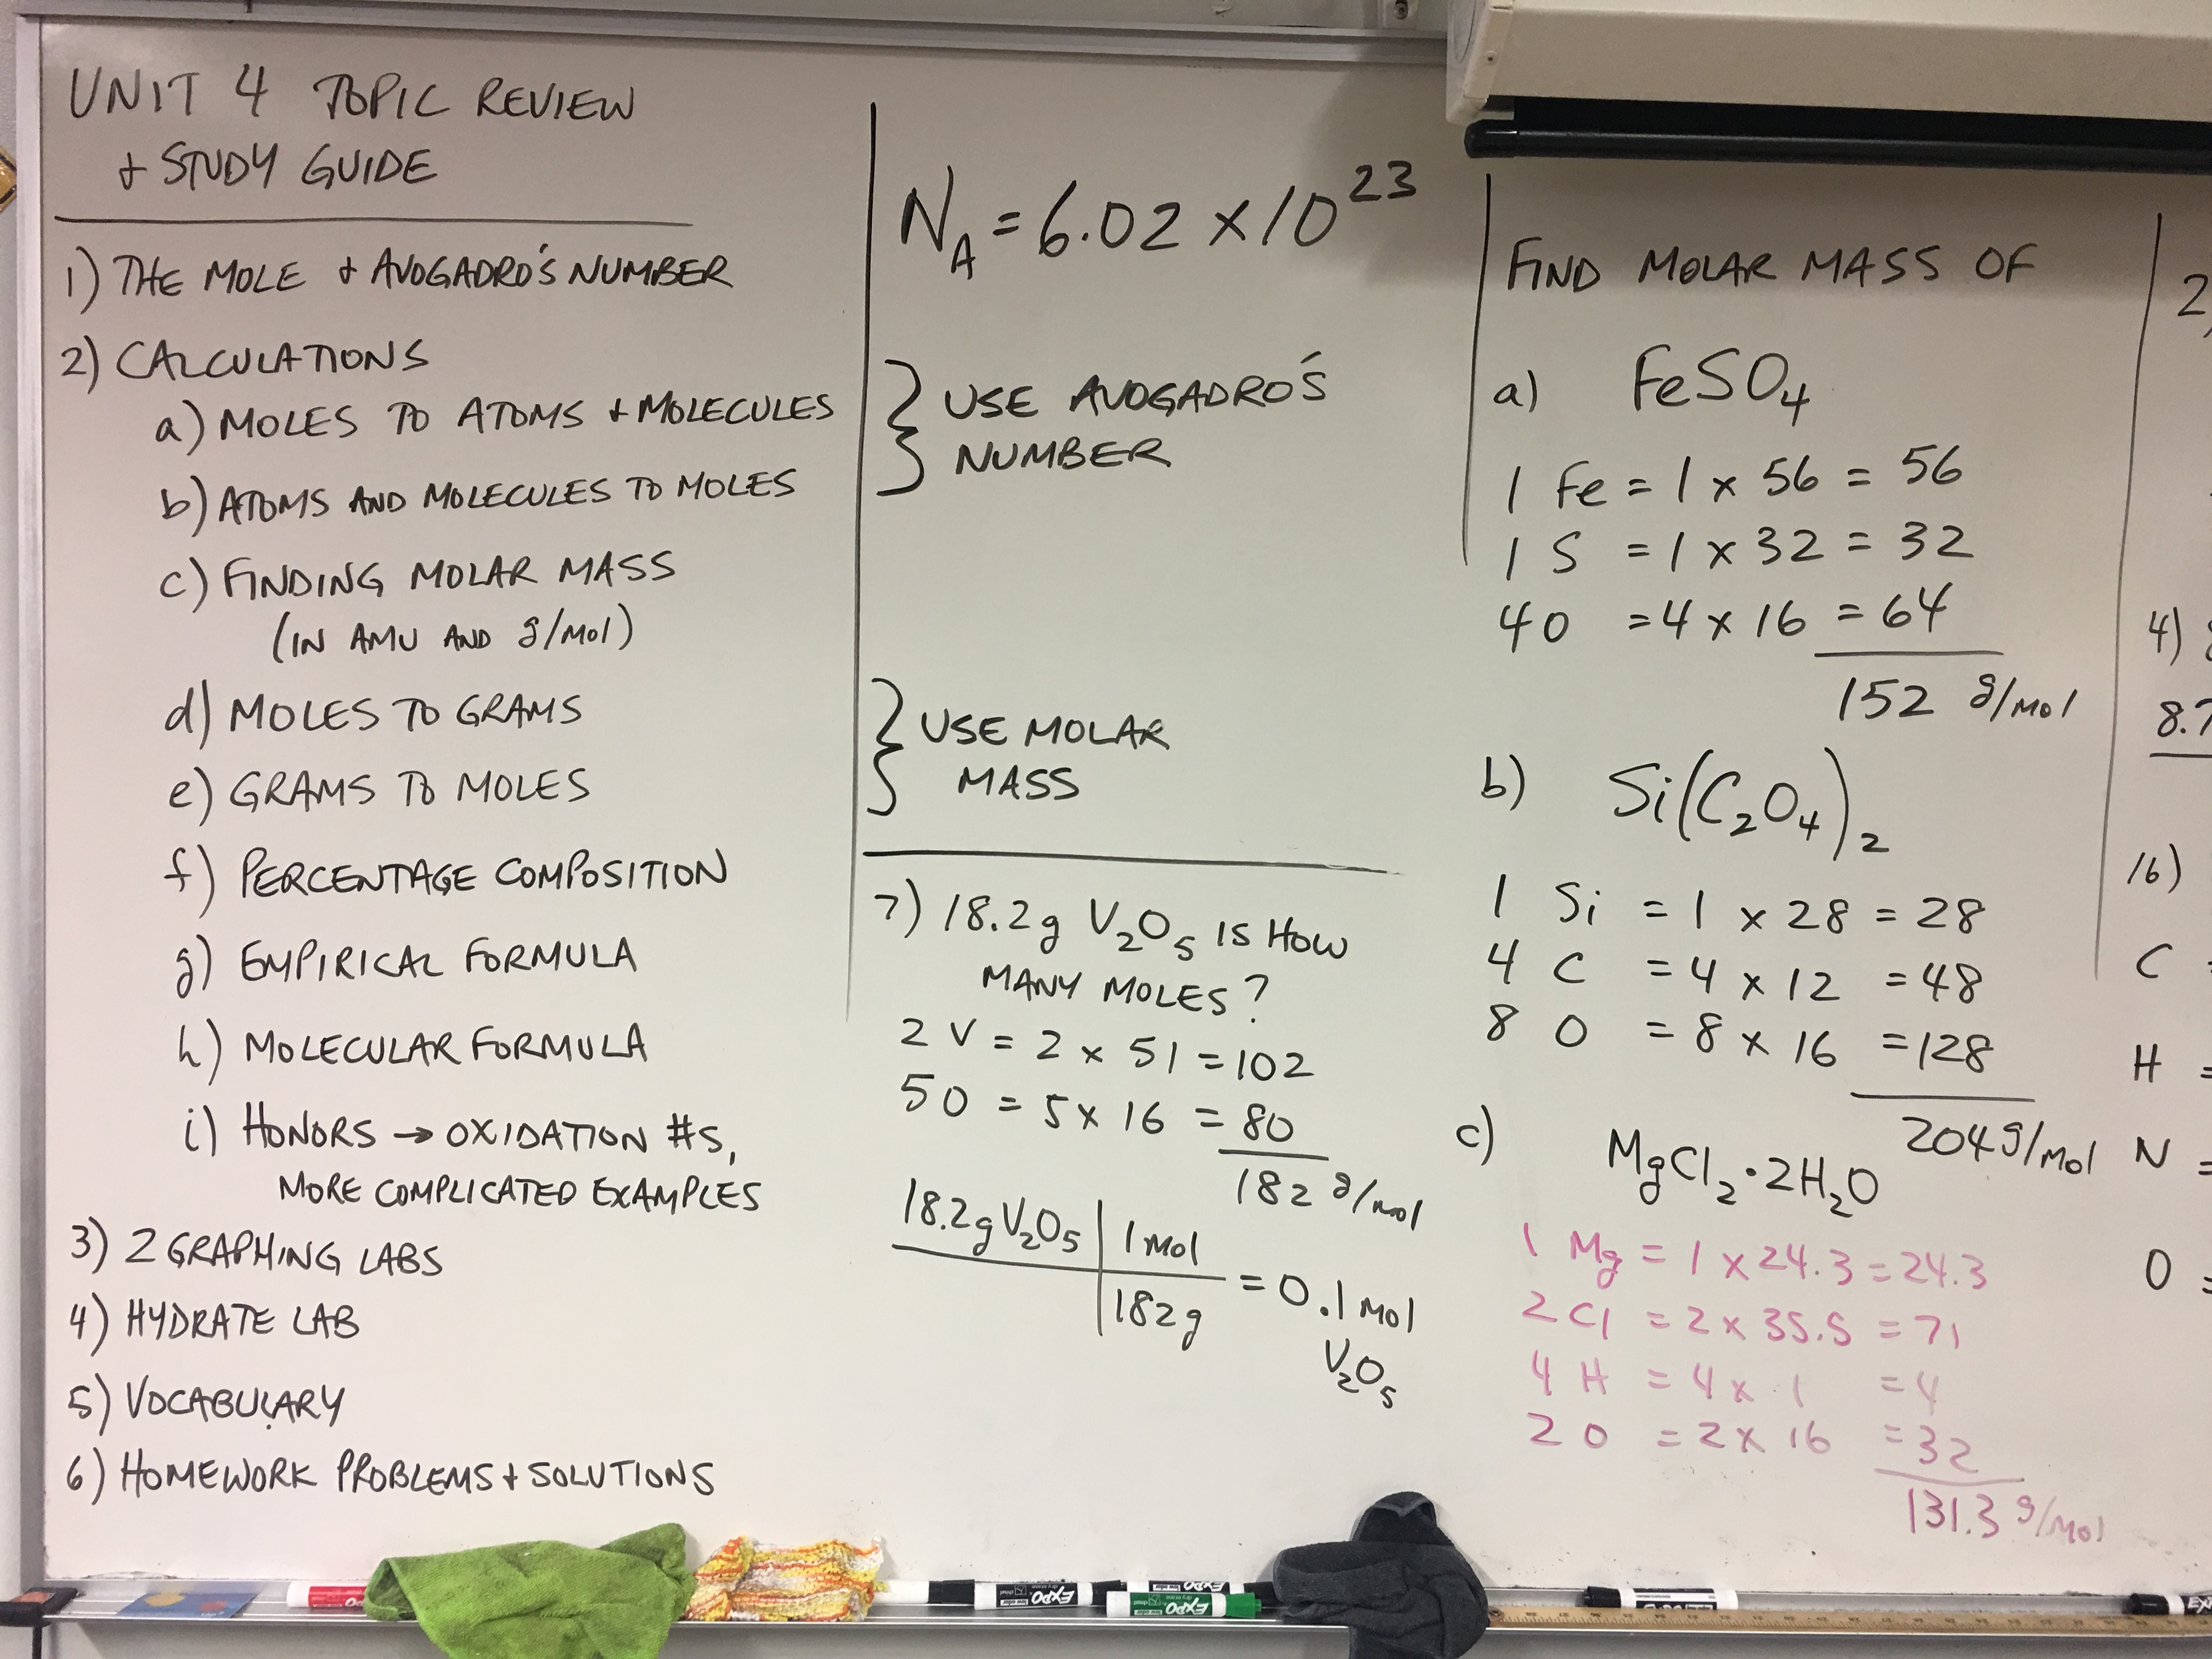 UNIT 4 TOPIC REVIEW
+ STUDY GUIDE
1) THE MOLE + AVOGADRO'S NUMBER
2) CALCULATIONS
a) MOLES TO ATOMS + MOLECULES
b) ATOMS AND MOLECULES TO MOLES
c) FINDING MOLAR MASS
(IN AMU AND g/mol)
d) MOLES TO GRAMS
e) GRAMS TO MOLES
f) PERCENTAGE COMPOSITION
g) EMPIRICAL FORMULA
h) MOLECULAR FORMULA
i) HONORS → OXIDATION #S,
MORE COMPLICATED EXAMPLES
3) 2 GRAPHING LABS
4) HYDRATE LAB
5) VOCABULARY
6) HOMEWORK PROBLEMS + SOLUTIONS
N_A = 6.02 x 10^23
} USE AVOGADRO'S
NUMBER
} USE MOLAR
MASS
7) 18.2g V₂O₅ IS HOW
MANY MOLES?
2 V = 2 x 51 = 102
5 O = 5 x 16 = 80
182 g/mol
18.2g V₂O₅ | 1 mol
182g
= 0.1 mol
V₂O₅
FIND MOLAR MASS OF
a) FeSO₄
1 Fe = 1 x 56 = 56
1 S = 1 x 32 = 32
4 O = 4 x 16 = 64
152 g/mol
b) Si(C₂O₄)₂
1 Si = 1 x 28 = 28
4 C = 4 x 12 = 48
8 O = 8 x 16 = 128
204 g/mol
c) MgCl₂·2H₂O
1 Mg = 1 x 24.3 = 24.3
2 Cl = 2 x 35.5 = 71
4 H = 4 x 1 = 4
2 O = 2 x 16 = 32
131.3 g/mol
2
4)
8.7
16)
C =
H =
N =
O =
EXPO
EXPO
EXPO